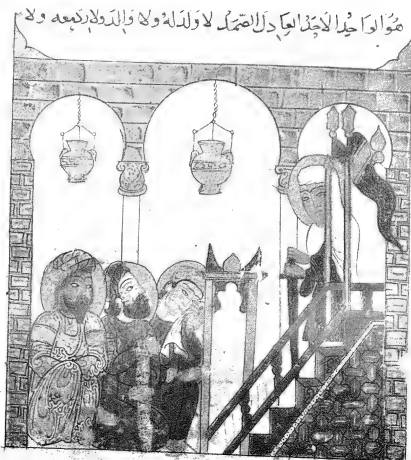 هو الواحد الاحد العادل الصمد لا ولد له ولا والد ولا رد معه ولا